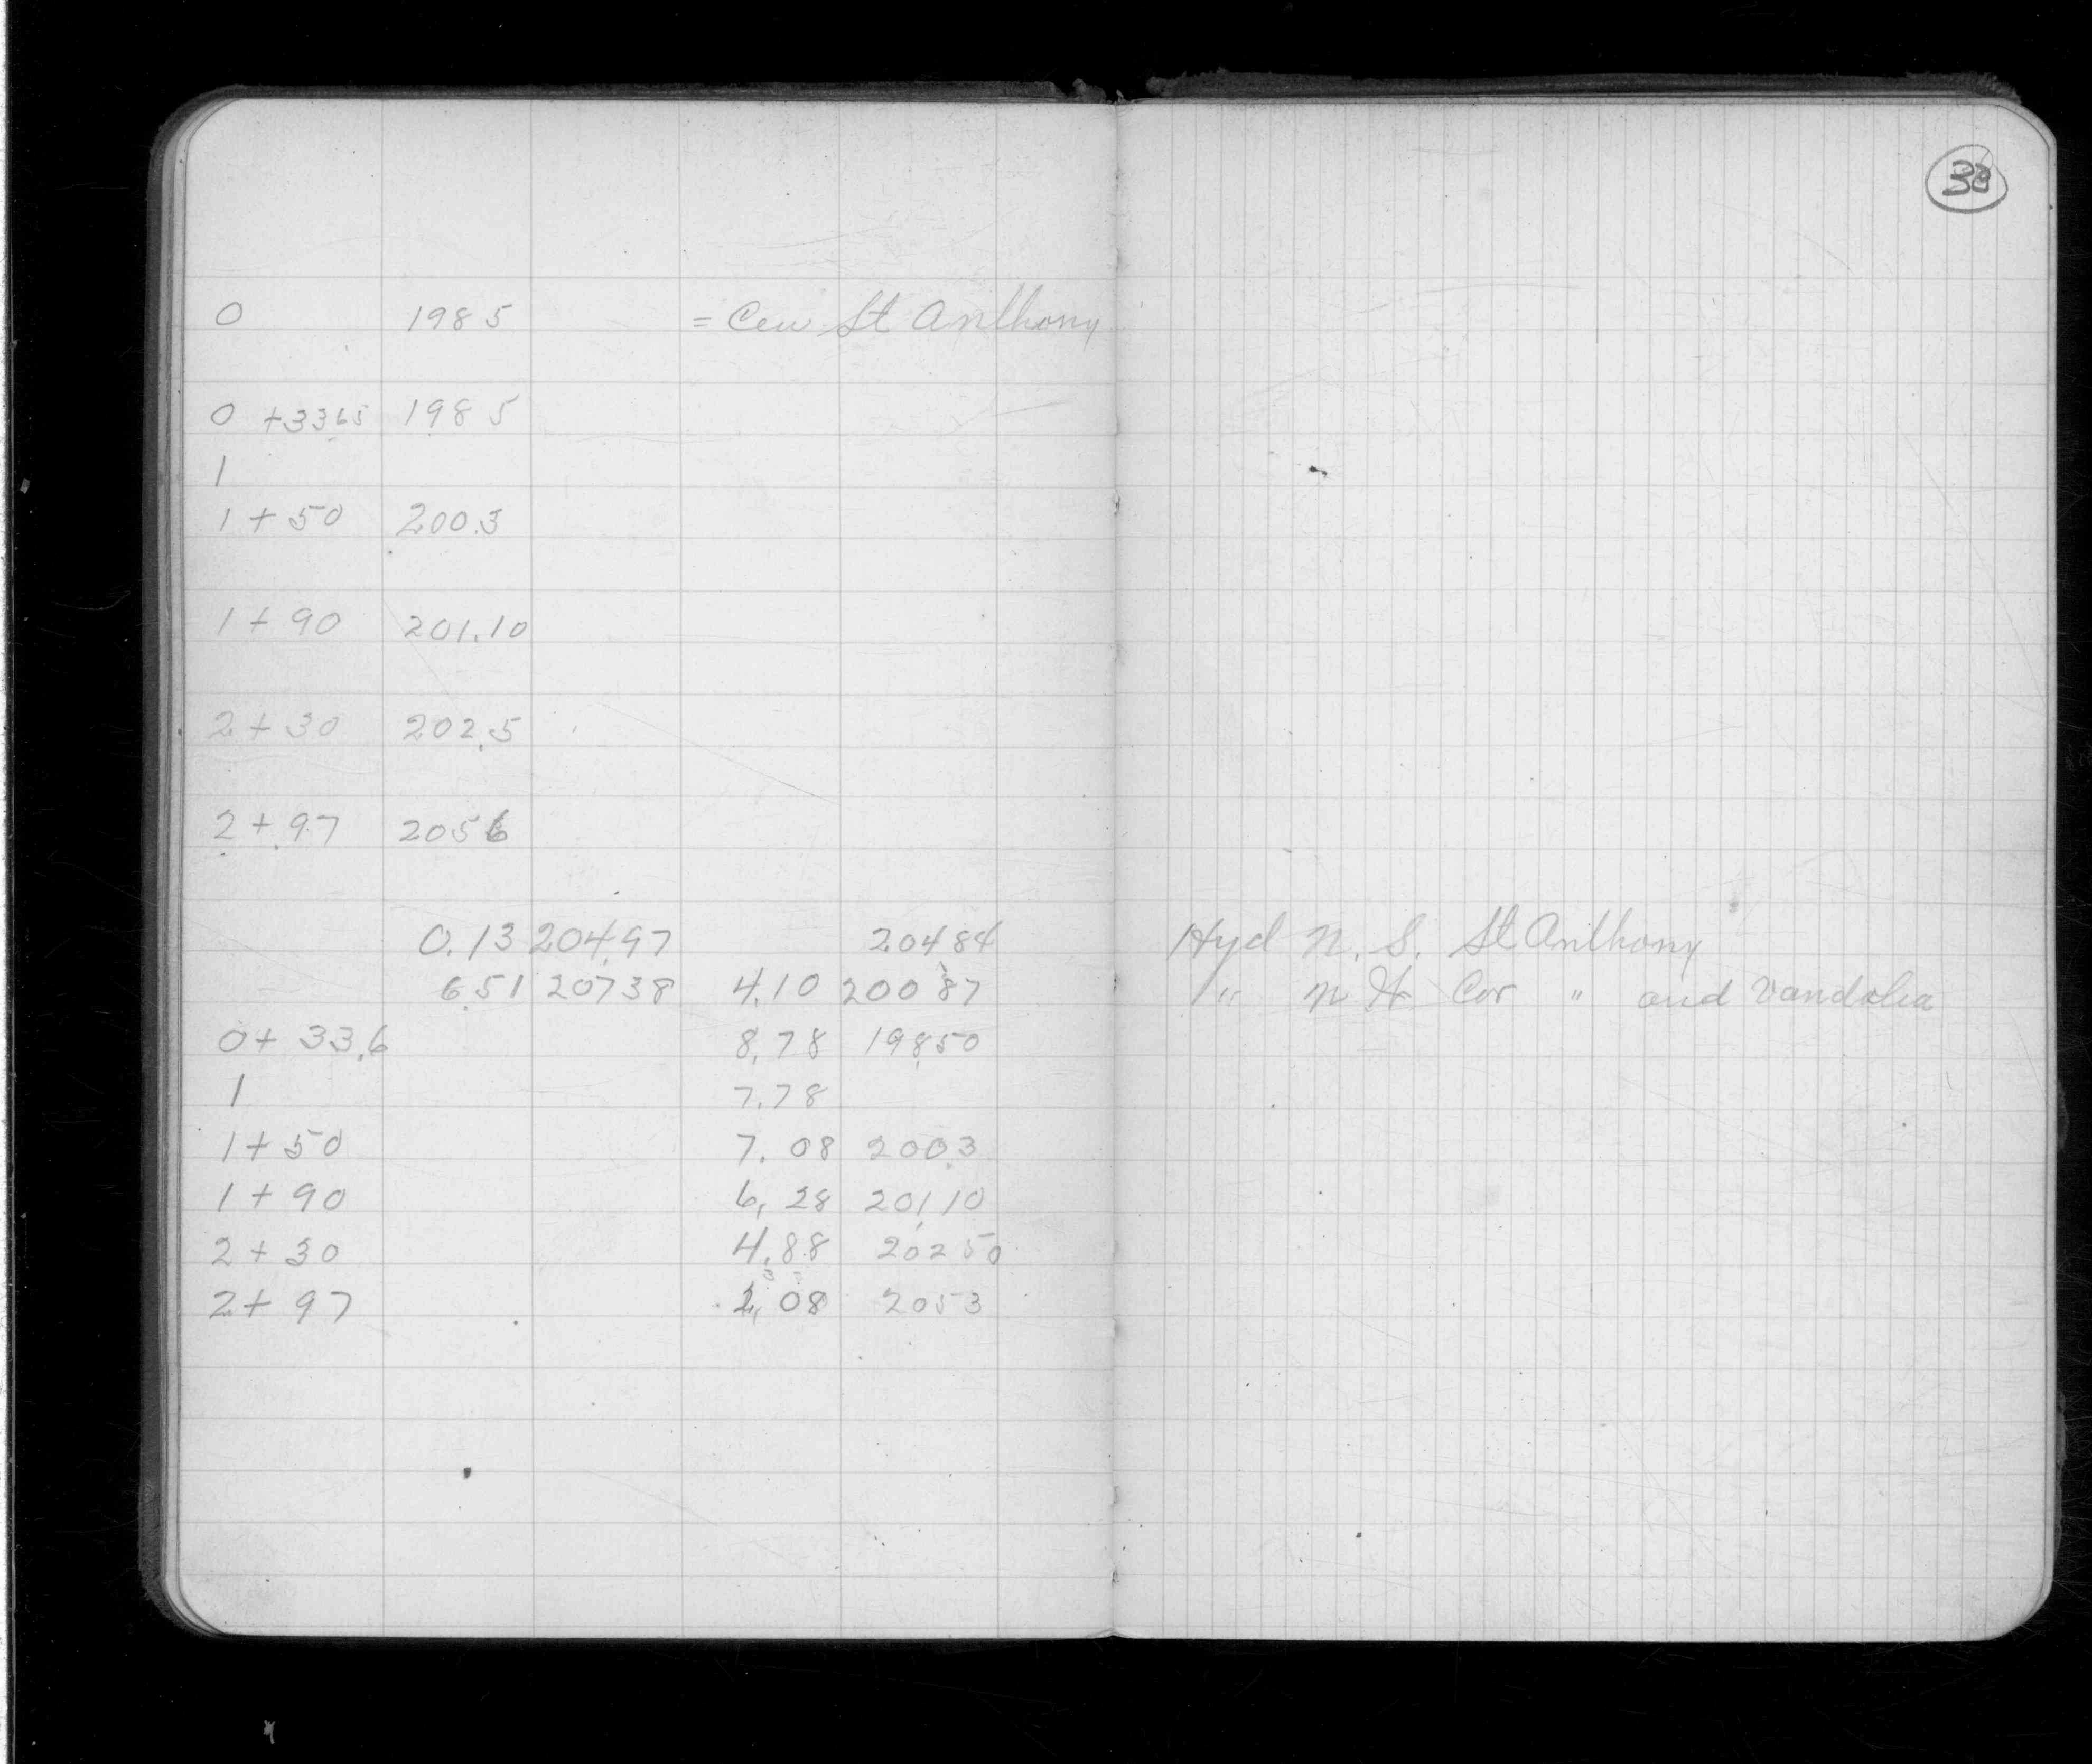 33
0 198 5 = Cen St Anthony
0 +33 65 198 5
1
1 + 50 200.3
1 + 90 201.10
2 + 30 202.5
2 + 97 205 6
0.13 204.97 204 84 Hyd N. S. St Anthony
6.51 207 38 4.10 200 87 " N W Cor " and Vandalia
0 + 33.6 8.78 198.50
1 7.78
1 + 50 7.08 200.3
1 + 90 6.28 201.10
2 + 30 4.88 202 50
2 + 97 2.08 205 3